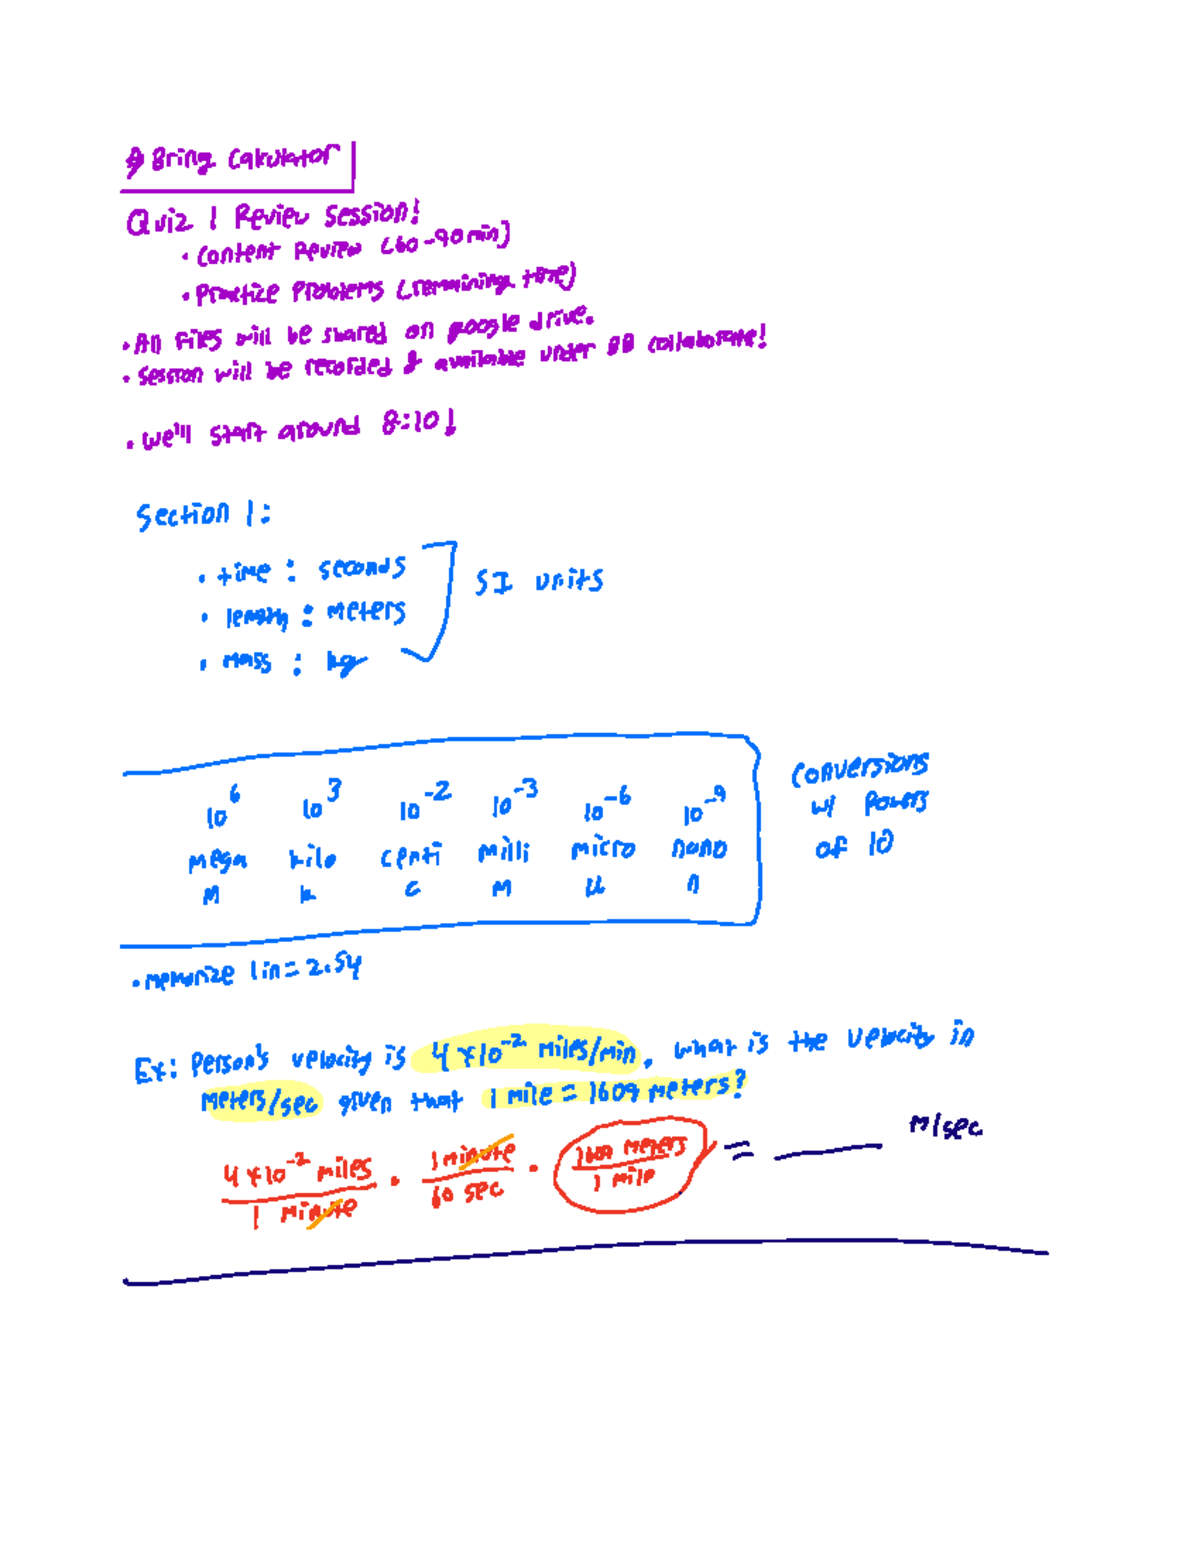 Bring Calculator
Quiz 1 Review Session!
• Content Review (60-90min)
• Practice Problems (remaining time)
• All files will be shared on google drive.
• Session will be recorded & available under BB collaborate!
• we'll start around 8:10!
Section 1:
• time : seconds
• length : meters
• mass : kg
SI units
10^6 10^3 10^-2 10^-3 10^-6 10^-9
mega kilo centi milli micro nano
M k c m μ n
conversions
w/ powers
of 10
• memorize 1in = 2.54
Ex: Person's velocity is 4 × 10^-2 miles/min, what is the velocity in
meters/sec given that 1 mile = 1609 meters?
4 × 10^-2 miles / 1 minute • 1 minute / 60 sec • 1609 meters / 1 mile = ____ m/sec